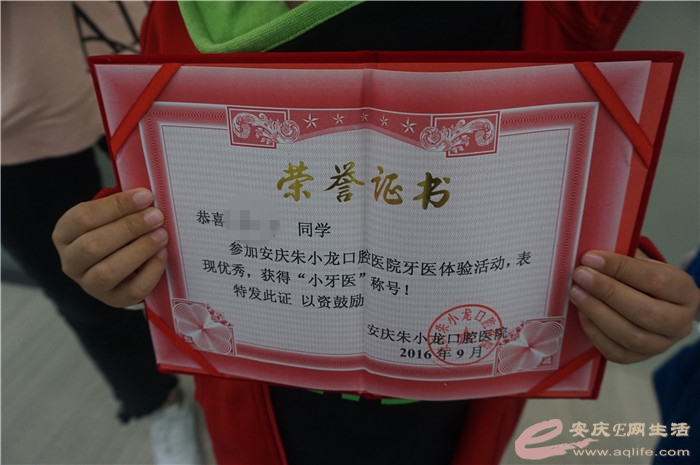 荣誉证书
恭喜 同学
参加安庆朱小龙口腔医院牙医体验活动，表
现优秀，获得“小牙医”称号！
特发此证 以资鼓励
安庆朱小龙口腔医院
2016年9月
安庆E网生活
www.aqlife.com